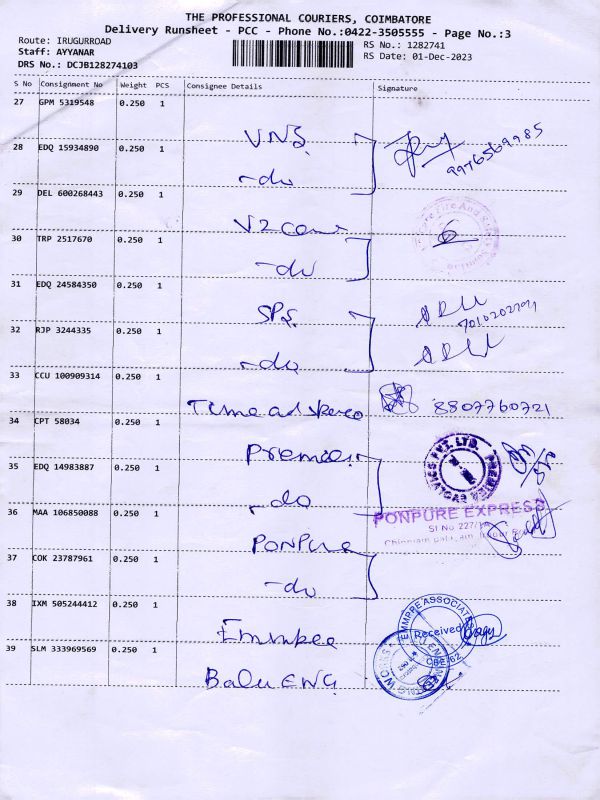 THE PROFESSIONAL COURIERS, COIMBATORE
Delivery Runsheet - PCC - Phone No.:0422-3505555 - Page No.:3
Route: IRUGURROAD
RS No.: 1282741
Staff: AYYANAR
RS Date: 01-Dec-2023
DRS No.: DCJB128274103
S No Consignment No Weight PCS Consignee Details Signature
27 GPM 5319548 0.250 1
VNS
9976569985
28 EDQ 15934890 0.250 1
-do
29 DEL 600268443 0.250 1
V2
6
30 TRP 2517670 0.250 1
-do
31 EDQ 24584350 0.250 1
SPS
32 RJP 3244335 0.250 1
-do
33 CCU 100909314 0.250 1
Time
8807760721
34 CPT 58034 0.250 1
Premier
PVT. LTD.
35 EDQ 14983887 0.250 1
-do
36 MAA 106850088 0.250 1
PONPURE EXPRESS
SI No 227/1A
PONPURE
37 COK 23787961 0.250 1
-do
38 IXM 505244412 0.250 1
EMMPRE ASSOCIAT
Received
CBE-62
Emmpee
39 SLM 333969569 0.250 1
WORKS
Balu ENG